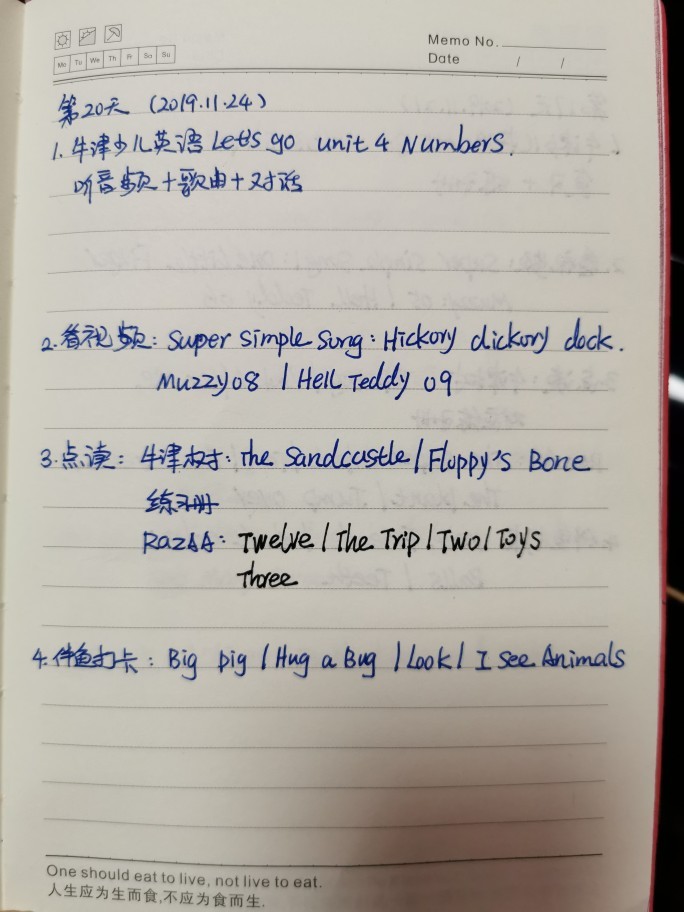 Memo No.
Mo Tu We Th Fr Sa Su
Date / /
第20天 (2019.11.24)
1. 牛津少儿英语 Let's go unit 4 Numbers.
听音频+歌曲+对话
2. 看视频: Super simple Song: Hickory dickory dock.
Muzzy08 / Hell Teddy 09
3. 点读: 牛津树: the Sandcastle / Floppy's Bone
练习册
RazAA: Twelve / The Trip / Two / Toys
Three
4. 伴鱼打卡: Big pig / Hug a Bug / Look / I see Animals
One should eat to live, not live to eat.
人生应为生而食,不应为食而生.